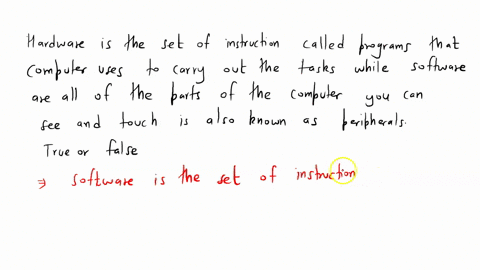 Hardware is the set of instruction called programs that
computer uses to carry out the tasks while software
are all of the parts of the computer you can
see and touch is also known as peripherals.
True or false
⇒ software is the set of instruction